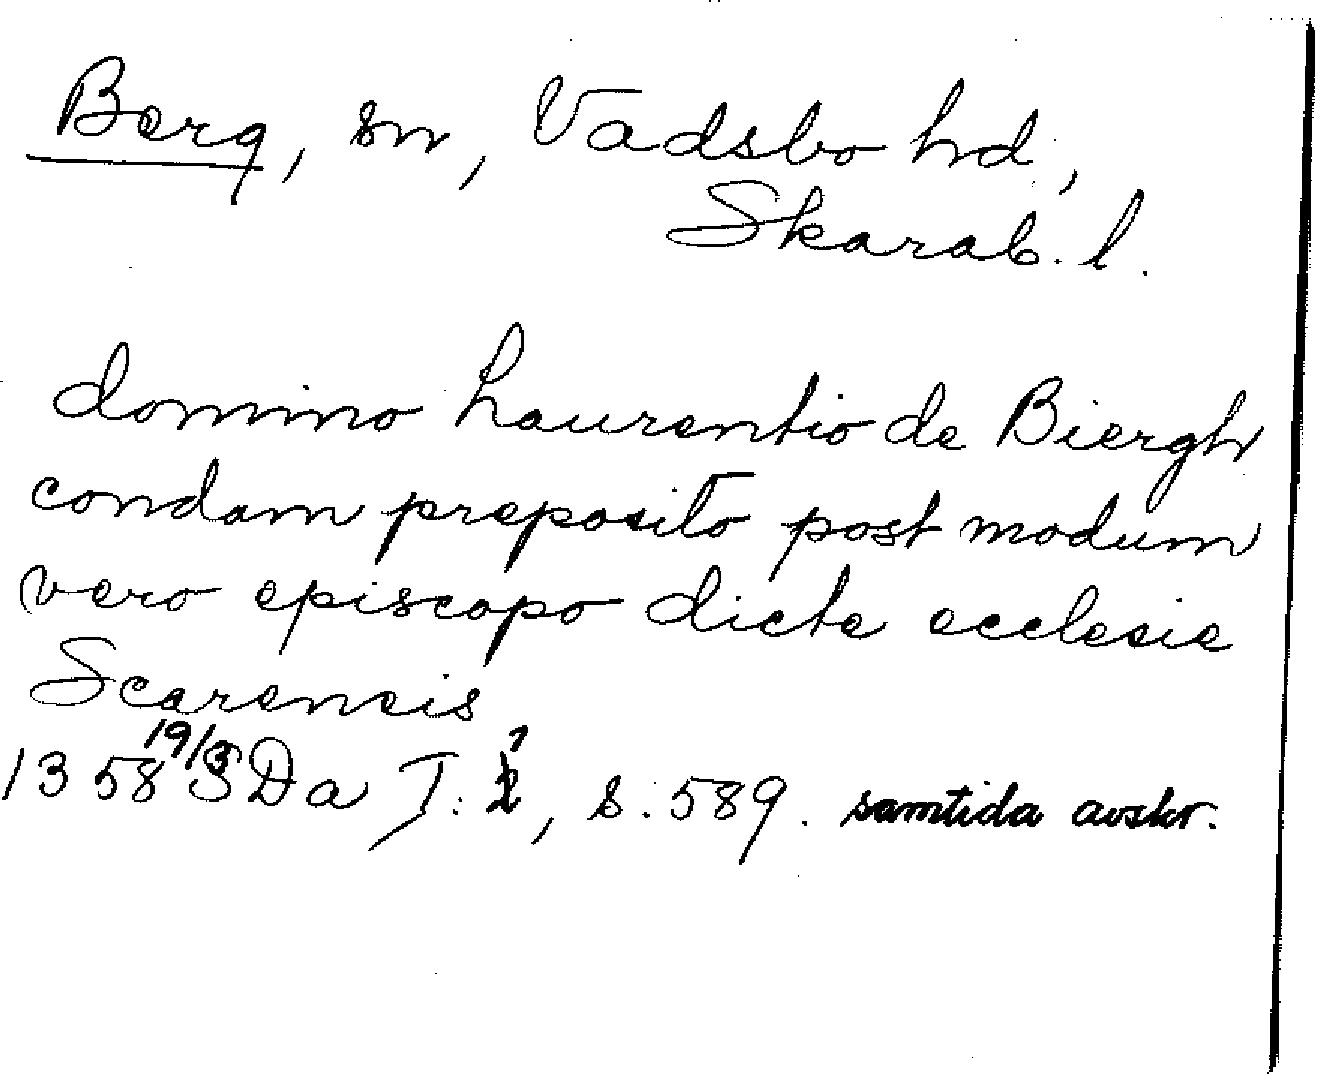 Berg, sn, Vadsbo hd,
Skarab. l.
domino Laurentio de Biergh
condam preposito post modum
vero episcopo dicte ecclesie
Scarensis
1358 19/3 SDa T. , s. 589. samtida avskr.